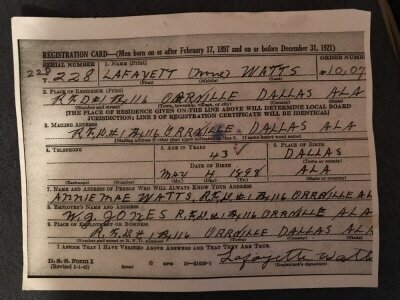 REGISTRATION CARD—(Men born on or after February 17, 1897 and on or before December 31, 1921)
SERIAL NUMBER 1. NAME (Print) ORDER NUMBER
228
T. 228 LAFAYETT (none) WATTS 10,07
(First) (Middle) (Last)
2. PLACE OF RESIDENCE (Print)
R.F.D#1 Bx 116 ORRVILLE DALLAS ALA
(Number and street) (Town, township, village, or city) (County) (State)
[THE PLACE OF RESIDENCE GIVEN ON THE LINE ABOVE WILL DETERMINE LOCAL BOARD
JURISDICTION; LINE 2 OF REGISTRATION CERTIFICATE WILL BE IDENTICAL]
3. MAILING ADDRESS
R.F.D.#1 Bx 116 ORRVILLE DALLAS ALA
[Mailing address if other than place indicated on line 2. If same insert word same]
4. TELEPHONE 5. AGE IN YEARS 6. PLACE OF BIRTH
43 DALLAS
DATE OF BIRTH (Town or county)
MAY 4 1898 ALA
(Exchange) (Number) (Mo.) (Day) (Yr.) (State or country)
7. NAME AND ADDRESS OF PERSON WHO WILL ALWAYS KNOW YOUR ADDRESS
ANNIE MAE WATTS, R.F.D.#1 Bx 116 ORRVILLE AL
8. EMPLOYER'S NAME AND ADDRESS
W.G. JONES R.F.D.#1 Bx 116 ORRVILLE ALA
9. PLACE OF EMPLOYMENT OR BUSINESS
R.F.D#1 Bx 116 ORRVILLE DALLAS ALA
(Number and street or R. F. D. number) (Town) (County) (State)
I AFFIRM THAT I HAVE VERIFIED ABOVE ANSWERS AND THAT THEY ARE TRUE.
D. S. S. Form 1
(Revised 1-1-42) (over) GPO 16—21630-1 Lafayette Watts
(Registrant's signature)